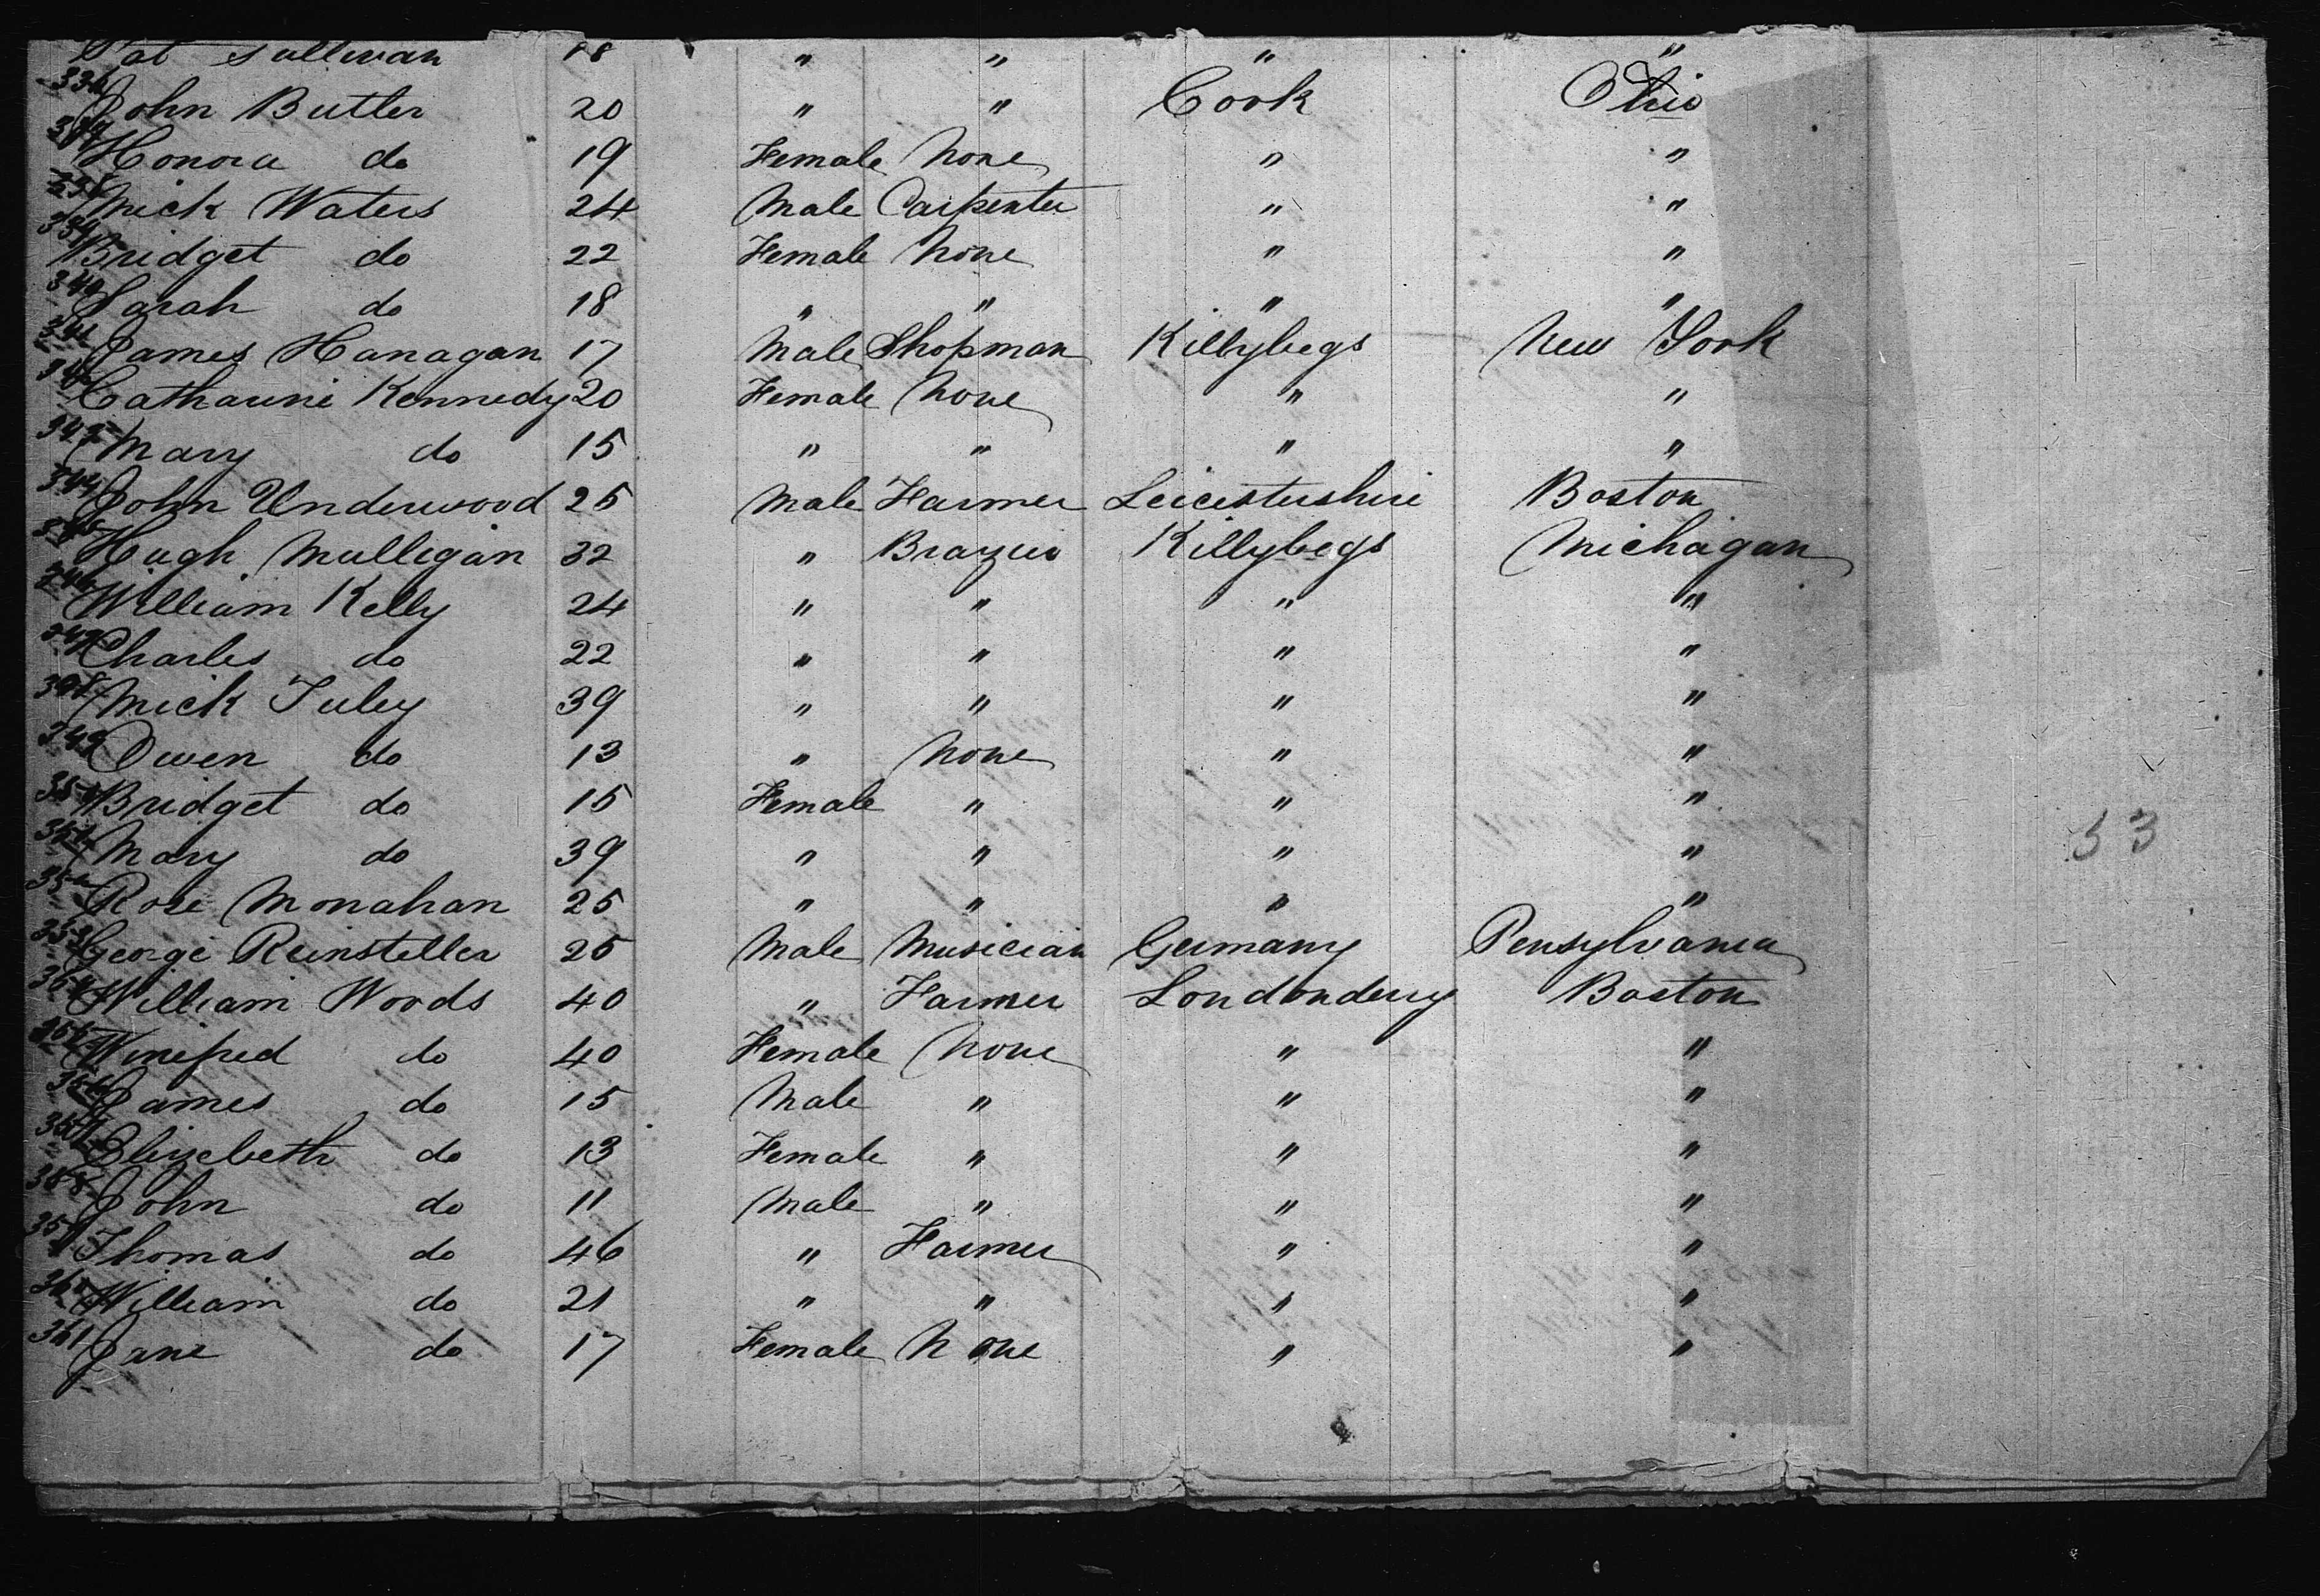 Pat Sullivan 18 " " " "
336 John Butler 20 " " Cork Ohio
337 Honora do 19 Female None " "
338 Mick Waters 24 Male Carpenter " "
339 Bridget do 22 Female None " "
340 Sarah do 18 " " " "
341 James Hanagan 17 Male Shopman Killybegs New York
342 Catharine Kennedy 20 Female None " "
343 Mary do 15 " " " "
344 John Underwood 25 Male Farmer Leicestershire Boston
345 Hugh Mulligan 32 " Brazier Killybegs Michagan
346 William Kelly 24 " " " "
347 Charles do 22 " " " "
348 Mick Tuley 39 " " " "
349 Owen do 13 " None " "
350 Bridget do 15 Female " " "
351 Mary do 39 " " " "
352 Rose Monahan 25 " " " "
353 George Reinsteller 25 Male Musician Germany Pensylvania
354 William Woods 40 " Farmer Londonderry Boston
355 Winefred do 40 Female None " "
356 James do 15 Male " " "
357 Elizebeth do 13 Female " " "
358 John do 11 Male " " "
359 Thomas do 46 " Farmer " "
360 William do 21 " " " "
361 Jane do 17 Female None " "
53